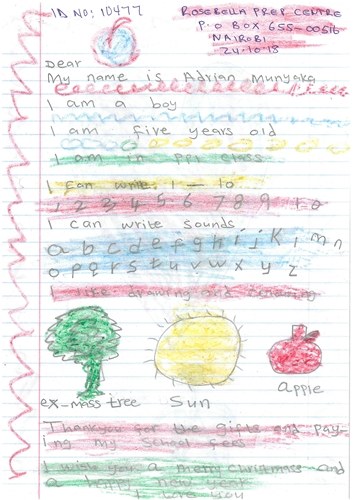 ID NO: 10477
ROSEBELLA PREP CENTRE
P.O BOX 655-00516
NAIROBI
24.10.18
Dear
My name is Adrian Munyaka
I am a boy
I am five years old
I am in pp1 class
I can write 1 — 10
1 2 3 4 5 6 7 8 9 10
I can write sounds
a b c d e f g h i j k l m n
o p q r s t u v w x y z
I like drawing and
ex-mass tree
Sun
apple
Thankyou for the gifts and pay-
ing my school fees
I wish you a merry christmass and
a happy new year
I love you